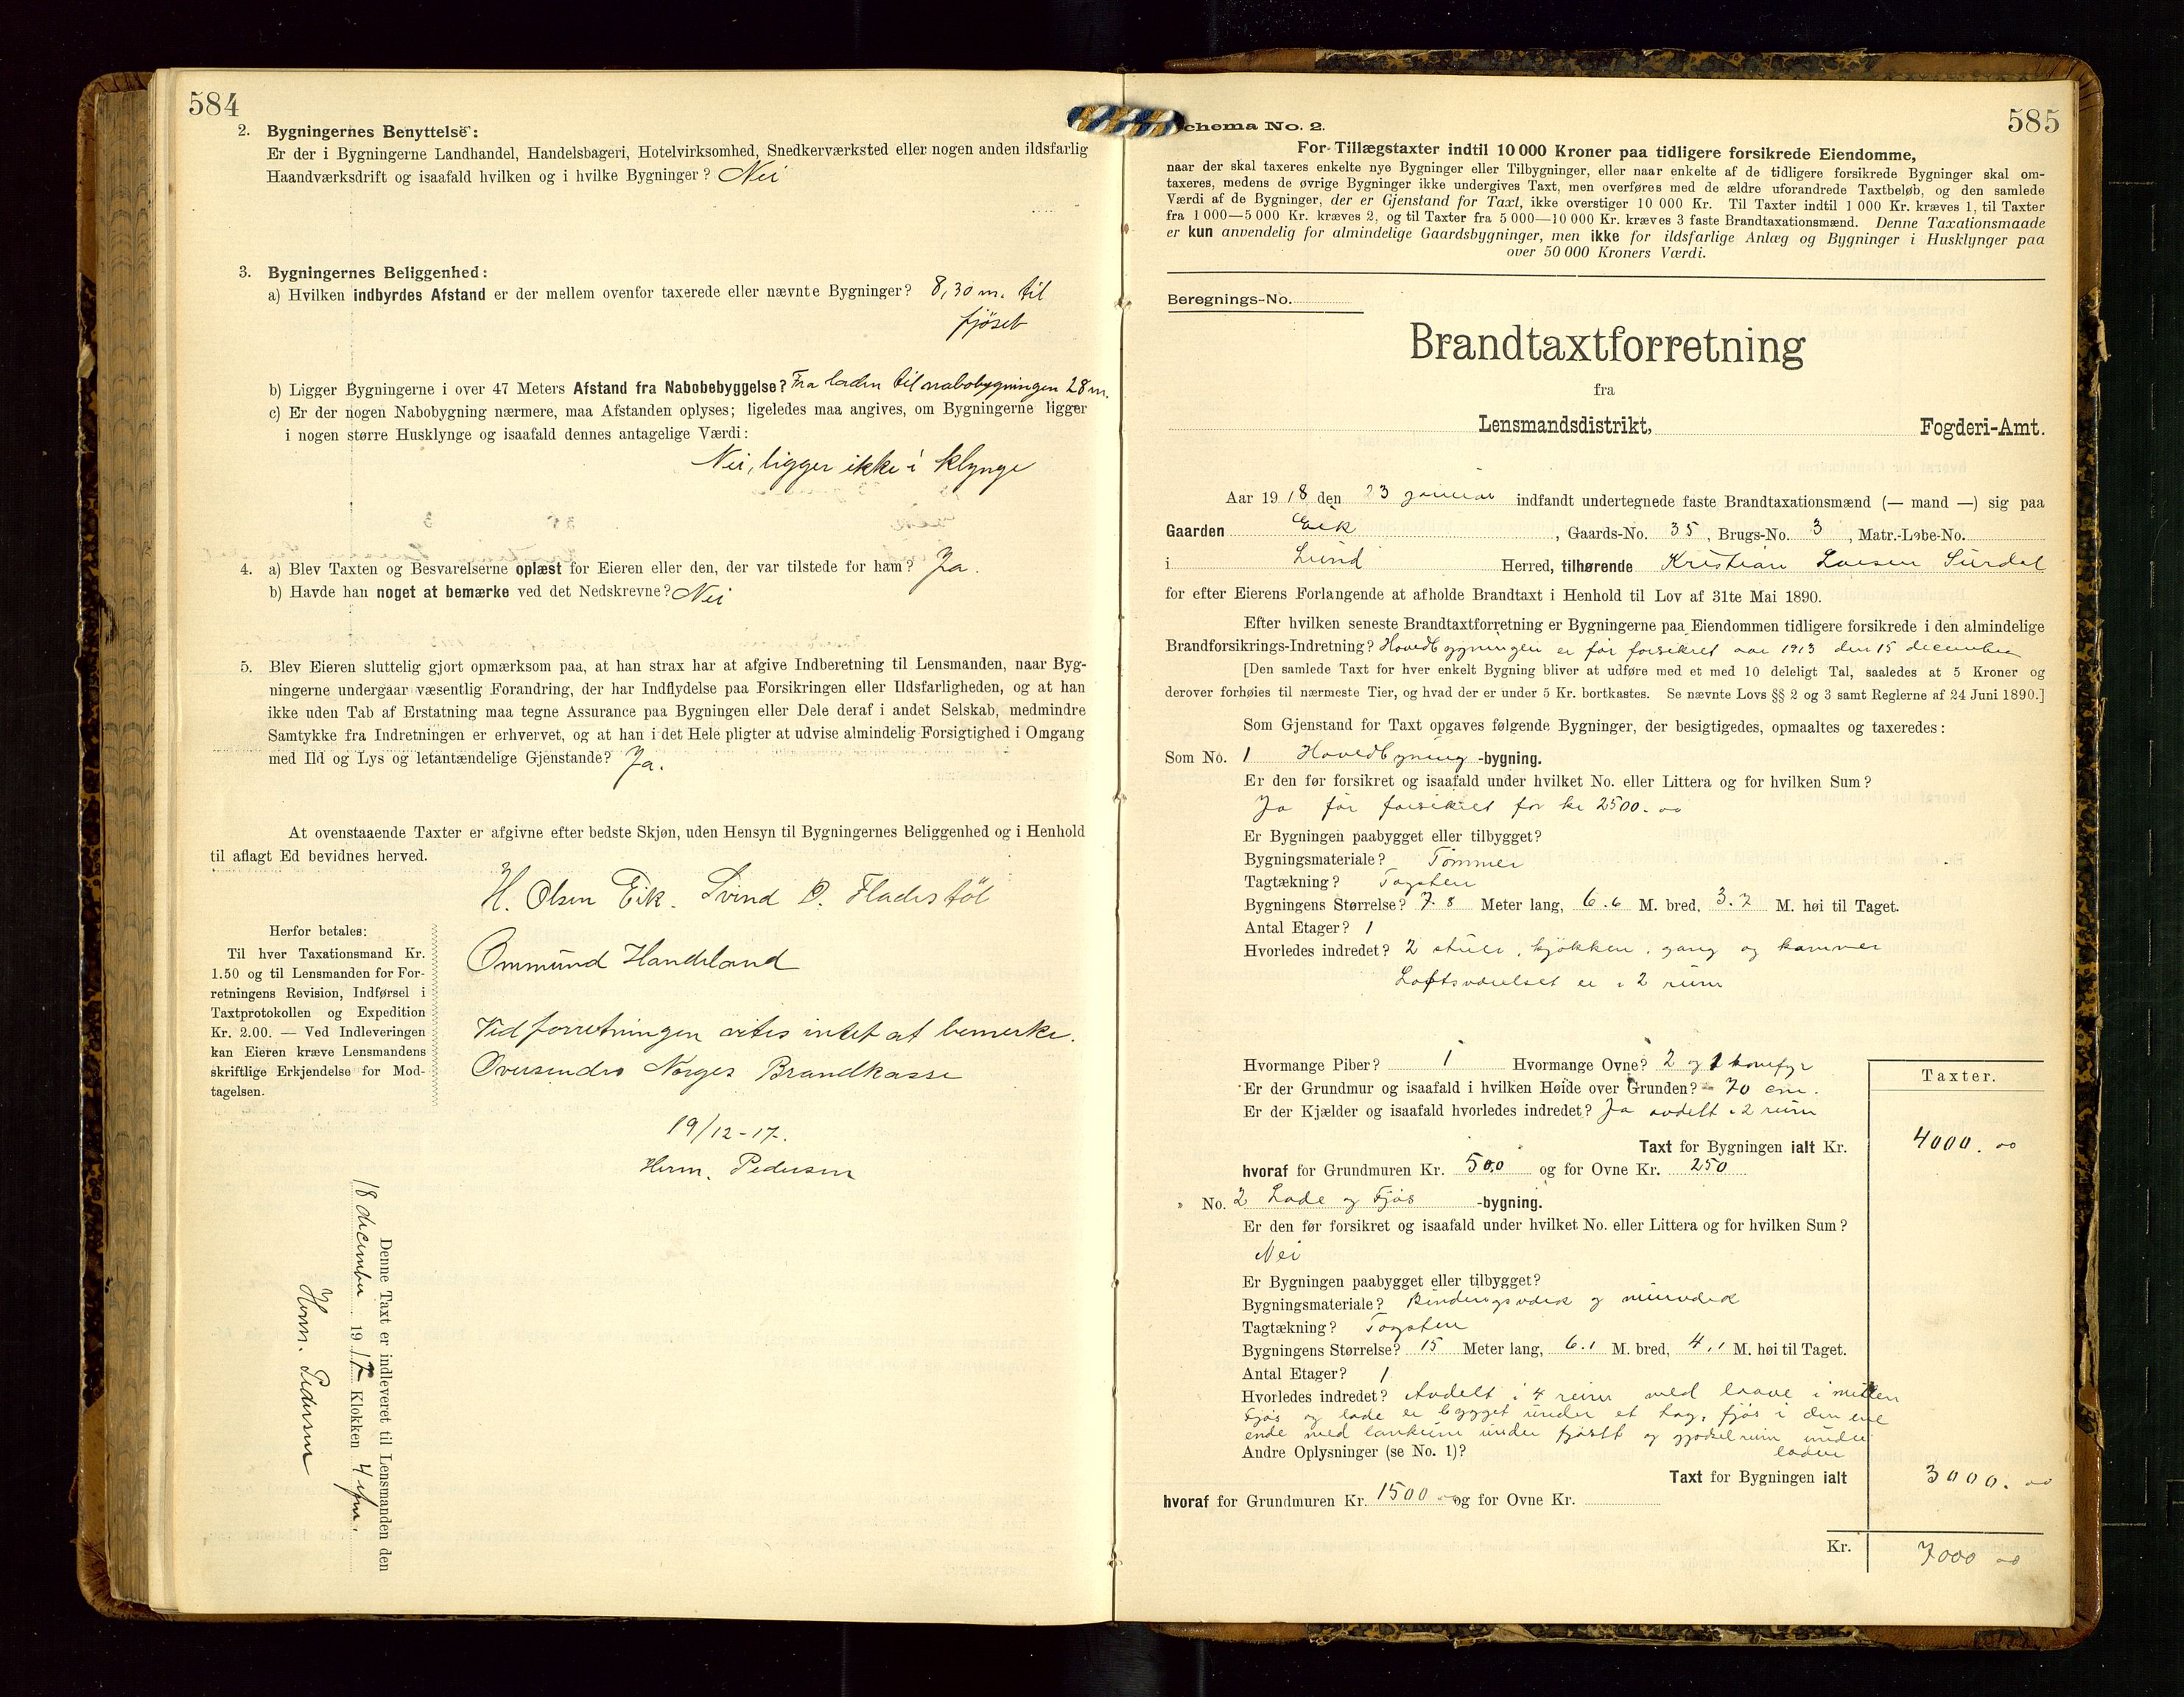 584
2. Bygningernes Benyttelse:
Er der i Bygningerne Landhandel, Handelsbageri, Hotelvirksomhed, Snedkerværksted eller nogen anden ildsfarlig
Haandværksdrift og isaafald hvilken og i hvilke Bygninger? Nei
3. Bygningernes Beliggenhed:
a) Hvilken indbyrdes Afstand er der mellem ovenfor taxerede eller nævnte Bygninger? 8,30 m. til
fjöset
b) Ligger Bygningerne i over 47 Meters Afstand fra Nabobebyggelse? Fra laden til nabobygningen 28 m.
c) Er der nogen Nabobygning nærmere, maa Afstanden oplyses; ligeledes maa angives, om Bygningerne ligger
i nogen større Husklynge og isaafald dennes antagelige Værdi:
Nei, ligger ikke i klynge
4. a) Blev Taxten og Besvarelserne oplæst for Eieren eller den, der var tilstede for ham? Ja.
b) Havde han noget at bemærke ved det Nedskrevne? Nei
5. Blev Eieren sluttelig gjort opmærksom paa, at han strax har at afgive Indberetning til Lensmanden, naar Byg-
ningerne undergaar væsentlig Forandring, der har Indflydelse paa Forsikringen eller Ildsfarligheden, og at han
ikke uden Tab af Erstatning maa tegne Assurance paa Bygningen eller Dele deraf i andet Selskab, medmindre
Samtykke fra Indretningen er erhvervet, og at han i det Hele pligter at udvise almindelig Forsigtighed i Omgang
med Ild og Lys og letantændelige Gjenstande? Ja.
At ovenstaaende Taxter er afgivne efter bedste Skjøn, uden Hensyn til Bygningernes Beliggenhed og i Henhold
til aflagt Ed bevidnes herved.
H. Olsen Eik. Svind O. Fladestöl
Ommund Handeland
Herfor betales:
Til hver Taxationsmand Kr.
1.50 og til Lensmanden for For-
retningens Revision, Indførsel i
Taxtprotokollen og Expedition
Kr. 2.00. — Ved Indleveringen
kan Eieren kræve Lensmandens
skriftlige Erkjendelse for Mod-
tagelsen.
Ved forretningen vites intet at bemerke.
Oversendes Norges Brandkasse
19/12-17.
Herm. Pedersen
Denne Taxt er indleveret til Lensmanden den
18 december 1917 Klokken 4 efm.
Herm. Pedersen
585
Schema No. 2.
For Tillægstaxter indtil 10 000 Kroner paa tidligere forsikrede Eiendomme,
naar der skal taxeres enkelte nye Bygninger eller Tilbygninger, eller naar enkelte af de tidligere forsikrede Bygninger skal om-
taxeres, medens de øvrige Bygninger ikke undergives Taxt, men overføres med de ældre uforandrede Taxtbeløb, og den samlede
Værdi af de Bygninger, der er Gjenstand for Taxt, ikke overstiger 10 000 Kr. Til Taxter indtil 1 000 Kr. kræves 1, til Taxter
fra 1 000—5 000 Kr. kræves 2, og til Taxter fra 5 000—10 000 Kr. kræves 3 faste Brandtaxationsmænd. Denne Taxationsmaade
er kun anvendelig for almindelige Gaardsbygninger, men ikke for ildsfarlige Anlæg og Bygninger i Husklynger paa
over 50 000 Kroners Værdi.
Beregnings-No.
Brandtaxtforretning
fra
Lensmandsdistrikt, Fogderi-Amt.
Aar 1918 den 23 januar indfandt undertegnede faste Brandtaxationsmænd (— mand —) sig paa
Gaarden Eik, Gaards-No. 35, Brugs-No. 3, Matr.-Løbe-No.
i Lund Herred, tilhørende Kristian Larsen Surdal
for efter Eierens Forlangende at afholde Brandtaxt i Henhold til Lov af 31te Mai 1890.
Efter hvilken seneste Brandtaxtforretning er Bygningerne paa Eiendommen tidligere forsikrede i den almindelige
Brandforsikrings-Indretning? Hovedbygningen er før forsikret aar 1913 den 15 december
[Den samlede Taxt for hver enkelt Bygning bliver at udføre med et med 10 deleligt Tal, saaledes at 5 Kroner og
derover forhøies til nærmeste Tier, og hvad der er under 5 Kr. bortkastes. Se nævnte Lovs §§ 2 og 3 samt Reglerne af 24 Juni 1890.]
Som Gjenstand for Taxt opgaves følgende Bygninger, der besigtigedes, opmaaltes og taxeredes:
Som No. 1 Hovedbyning -bygning.
Er den før forsikret og isaafald under hvilket No. eller Littera og for hvilken Sum?
Ja før forsikret for kr 2500.00
Er Bygningen paabygget eller tilbygget?
Bygningsmateriale? Tømmer
Tagtækning? Tagsten
Bygningens Størrelse? 7.8 Meter lang, 6.6 M. bred, 3.7 M. høi til Taget.
Antal Etager? 1
Hvorledes indredet? 2 stuer, kjøkken, gang og kammer
Loftsværelset er i 2 rum
Hvormange Piber? 1 Hvormange Ovne? 2 og 1 komfyr
Er der Grundmur og isaafald i hvilken Høide over Grunden? 70 cm.
Er der Kjælder og isaafald hvorledes indredet? Ja avdelt i 2 rum
Taxter.
Taxt for Bygningen ialt Kr. 4000.00
hvoraf for Grundmuren Kr. 500 og for Ovne Kr. 250
» No. 2 Lade og Fjøs -bygning.
Er den før forsikret og isaafald under hvilket No. eller Littera og for hvilken Sum?
Nei
Er Bygningen paabygget eller tilbygget?
Bygningsmateriale? Bindingsverk og murverk
Tagtækning? Tagsten
Bygningens Størrelse? 15 Meter lang, 6.1 M. bred, 4.1 M. høi til Taget.
Antal Etager? 1
Hvorledes indredet? Avdelt i 4 reum med laave i mitten
Fjøs og lade er bygget under et tag, fjøs i den ene
ende med lankum under fjøset og gjødselrum under
laden
Andre Oplysninger (se No. 1)?
Taxt for Bygningen ialt 3000.00
hvoraf for Grundmuren Kr. 1500 og for Ovne Kr.
Kr. 7000 00